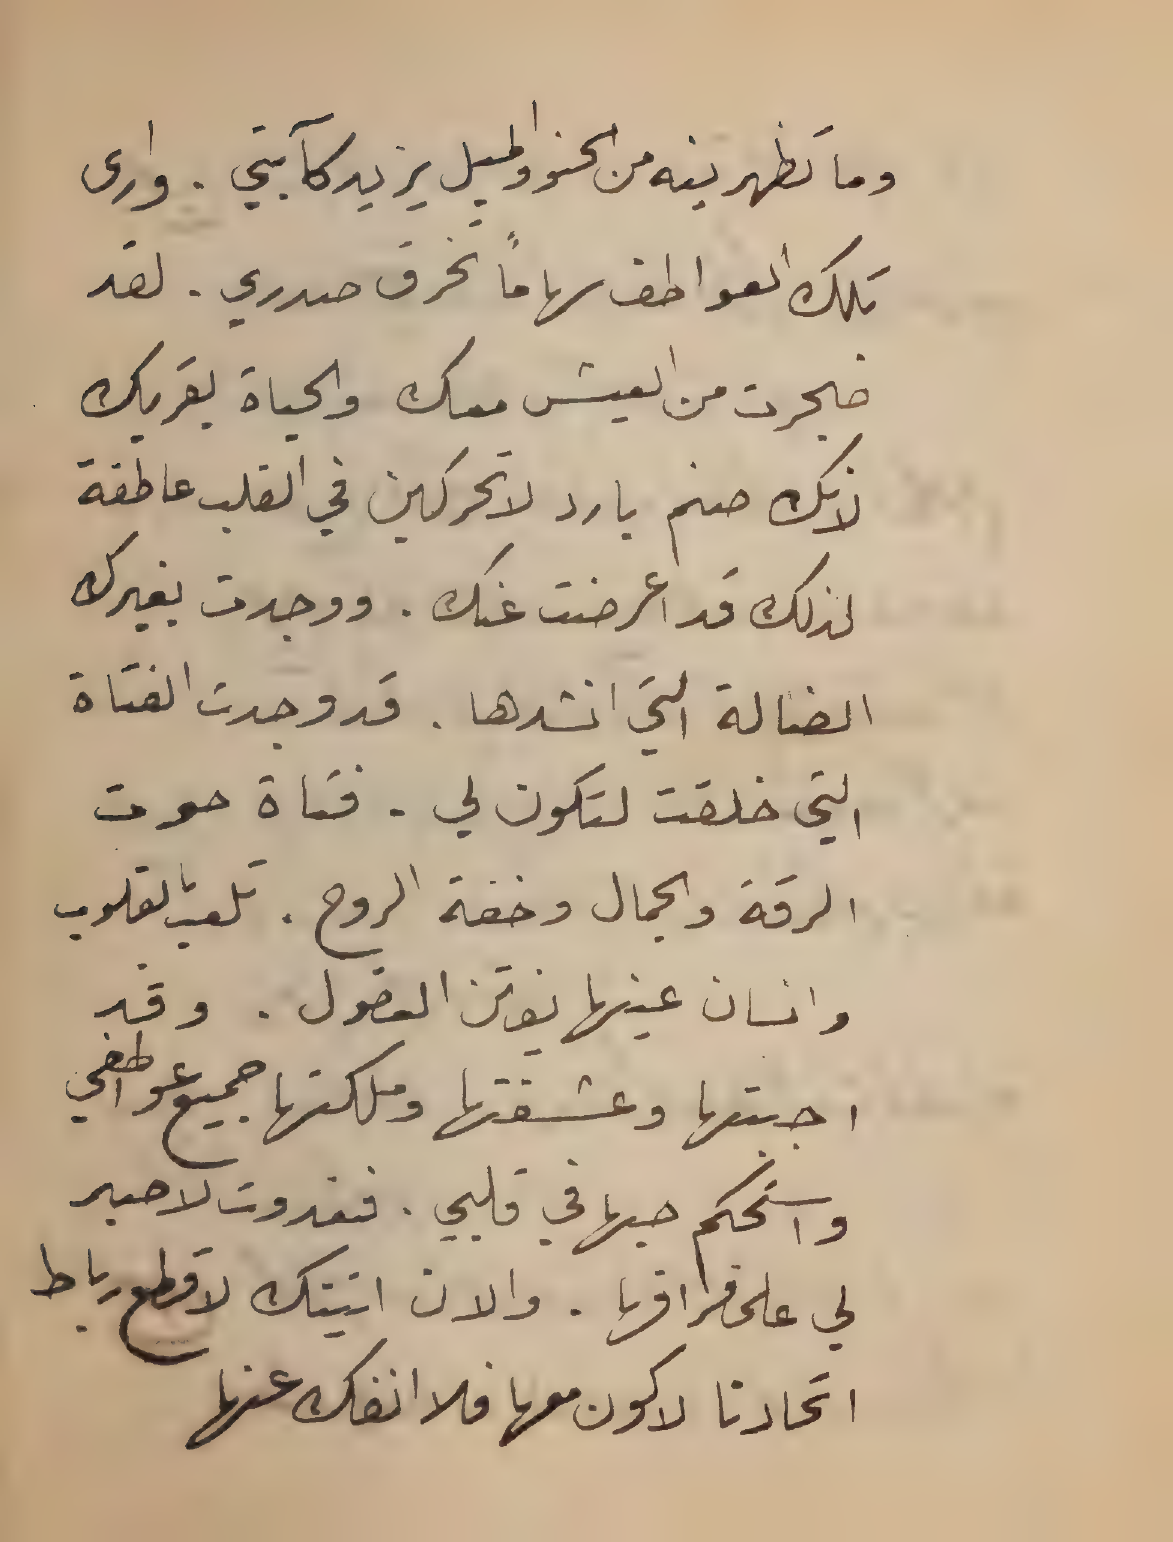 وما تظهرينه من الحنو والميل يزيد كآبتي . وارى
تلك العواطف سهاماً تخرق صدري . لقد
ضجرت من العيش معك والحياة بقربك
لانك صنم بارد لا تحركين في القلب عاطفة
لذلك قد اعرضت عنك . ووجدت بغيرك
الضالة التي انشدها . قد وجدت الفتاة
التي خلقت لتكون لي . فتاة حوت
الرقة والجمال وخفة الروح . تلعب بالقلوب
وانسان عينها يفتن العقول . وقد
احببتها وعشقتها وملكتها جميع عواطفي
واستحكم حبها في قلبي . فغدوت لا صبر
لي على فراقها . والان اتيتك لاقطع رباط
اتحادنا لاكون معها فلا انفك عنها